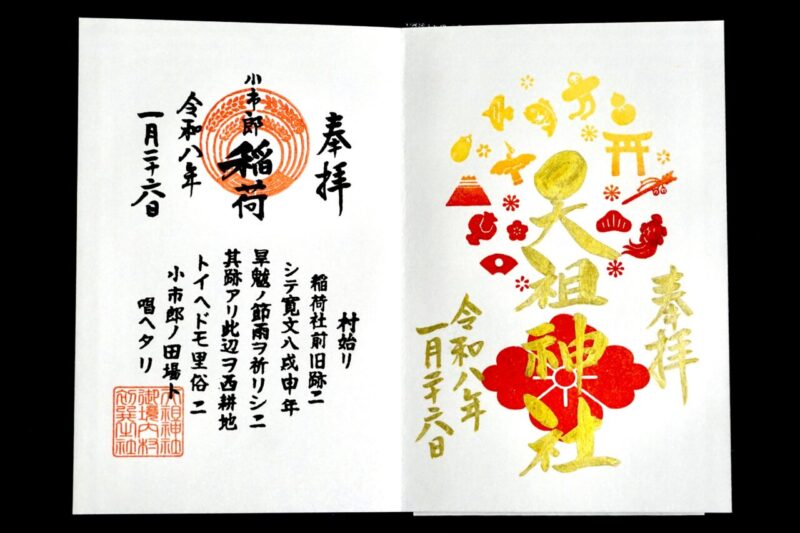 奉拝
天祖神社
令和八年
一月二十六日
奉拝
小市郎稲荷
令和八年
一月二十六日
村始り
稲荷社前旧跡ニ
シテ寛文八戌申年
旱魃ノ節雨ヲ祈リシニ
其跡アリ此辺ヲ西耕地
トイヘドモ里俗ニ
小市郎ノ田場ト
唱ヘタリ
天祖神社
御境内村